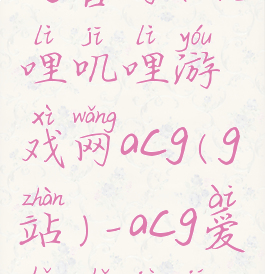 lī jī lī yóu
哩叽哩游
xì wǎng
戏网acg(g
zhàn ài
站)-acg爱